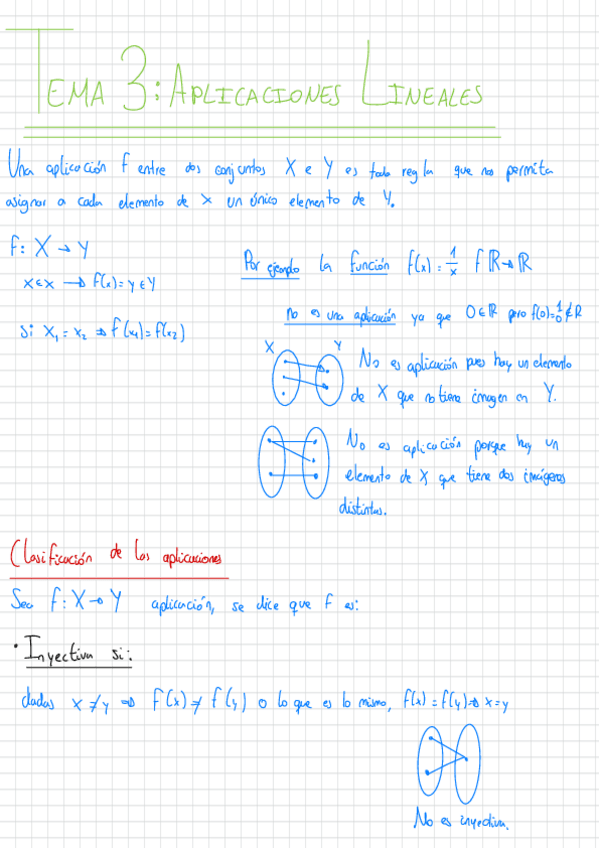 TEMA 3: APLICACIONES LINEALES
Una aplicación f entre dos conjuntos X e Y es toda regla que nos permita
asignar a cada elemento de X un único elemento de Y.
f: X → Y
x∈X → f(x)=y∈Y
si x₁ = x₂ ⇒ f(x₁)=f(x₂)
Por ejemplo la función f(x) = 1/x f ℝ→ℝ
no es una aplicación ya que 0∈ℝ pero f(0)=1/0∉ℝ
X Y
No es aplicación pues hay un elemento
de X que no tiene imagen en Y.
No es aplicación porque hay un
elemento de X que tiene dos imágenes
distintas.
Clasificación de las aplicaciones
Sea f: X→Y aplicación, se dice que f es:
· Inyectiva si:
dadas x ≠ y ⇒ f(x) ≠ f(y) o lo que es lo mismo, f(x) = f(y) ⇒ x=y
No es inyectiva.